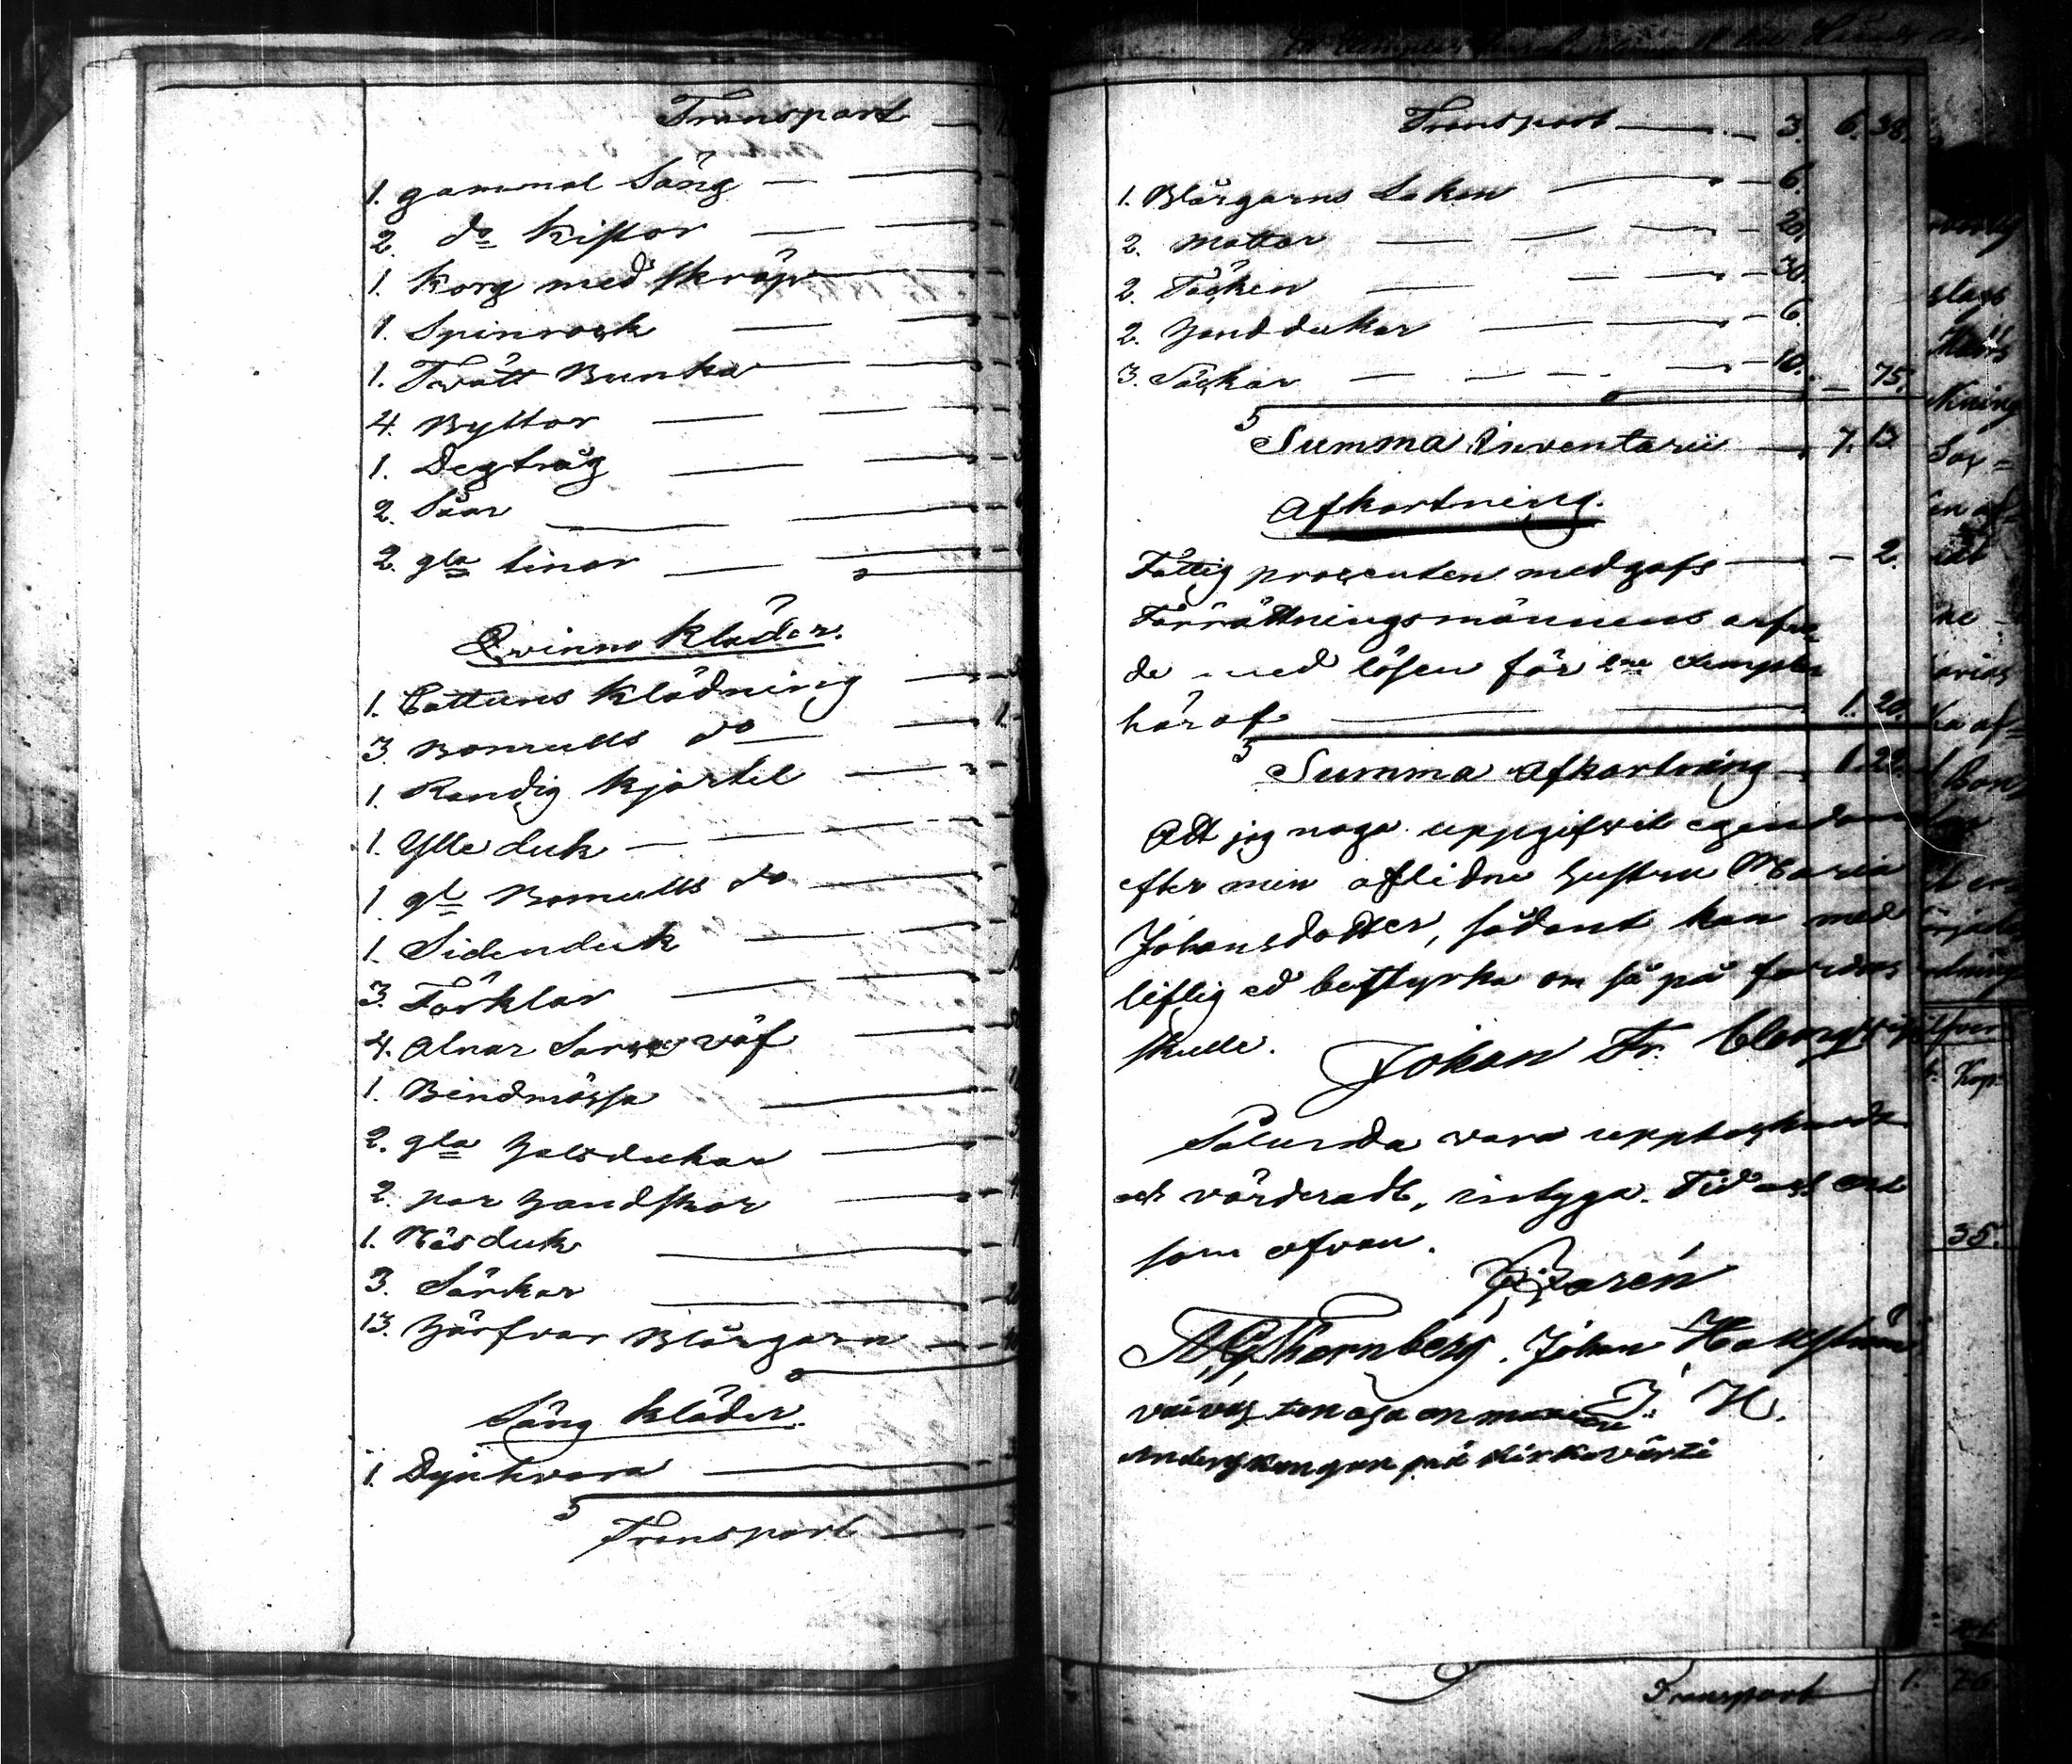 Transport
1. gammal Säng
2. do Kistor
1. Korg med skräp
1. Spinrock
1. Tvätt Bunka
4. Byttor
1. Degtråg
2. Såar
2. gla tinor
Qvinno kläder.
1. Cattuns Klädning
3 Bomulls do 1.
1. Randig Kjortel
1. Ylle duk
1 gl Bomulls do
1. Sidenduk
3. Förklar
4. Alnar väf
1. Bindmössa
2. gla Halsdukar
2. par Handskar
1. Näsduk
3. Särkar
13. Härfvor Blårgarn
Säng kläder.
1. Dynkvara
Transport
Transport 3. 6. 38.
1. Blårgarns Lakan 6.
2. Mattor 20.
2. Täcken 30.
2. Handdukar 6.
3. Säckar 10. 75.
Summa Inventarii 7. 13
Afkortning.
Fattig procenten medgafs 2.
Förrättningsmännens arfvo
de med lösen för Exemplar
häraf 1. 20.
Summa Afkortning 1. 22.
Att jag noga uppgifvit egendomen
efter min aflidne hustru Maria
Johansdotter, sådant kan med
liflig ed bestyrka om så på fordras
skulle. Johan Fr.
Sålunda vara upptecknadt
och värderadt, intyga. Tid och Ort
som ofvan.
Thornberg. Johan
J. H.
Transport 1. 76.
35.
Kop.